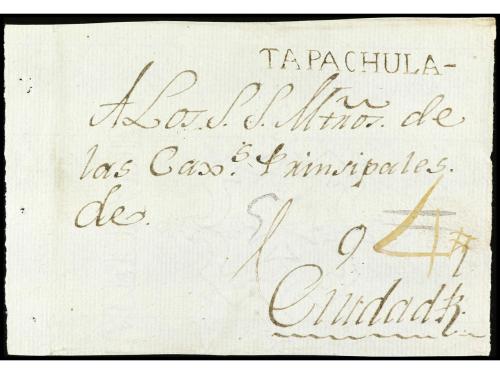 TAPACHULA-
A Los. S. S. Mtños. de
las Cax.s Prinsipales.
de.
9
Ciudad R.